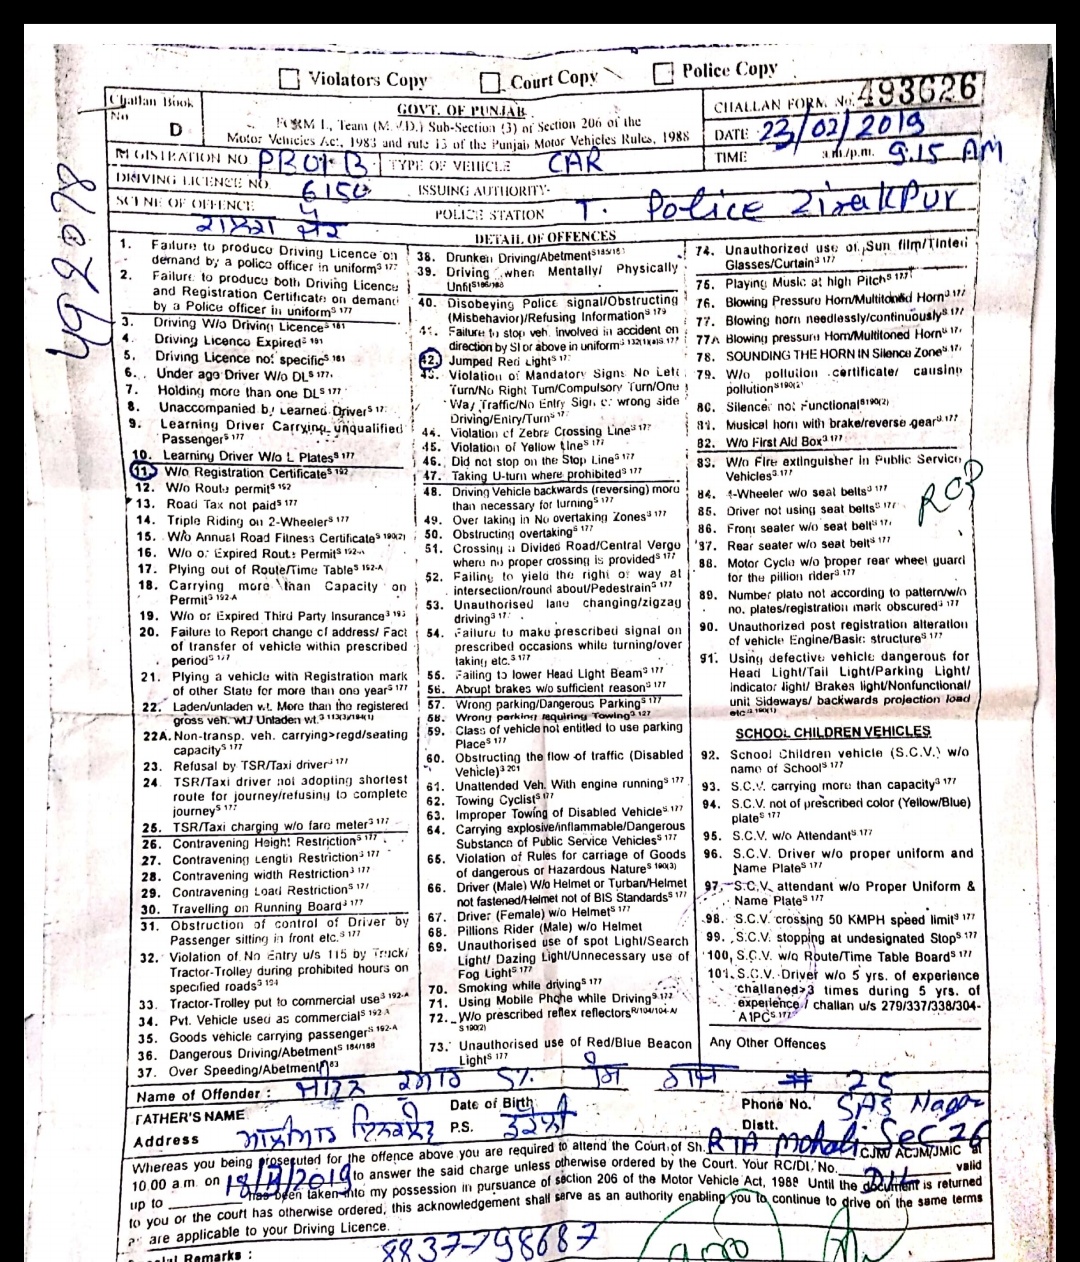 Violators Copy Court Copy Police Copy
498026
Challan Book No D
GOVT. OF PUNJAB
FORM I., Team (M.V.D.) Sub-Section (3) of Section 206 of the
Motor Vehicles Act, 1983 and rule 13 of the Punjab Motor Vehicles Rules, 1988
CHALLAN FORM. No. 493626
DATE 23/02/2019
TIME a m/p.m. 9.15 AM
REGISTRATION NO PB01B TYPE OF VEHICLE CAR
DRIVING LICENCE NO. 6150 ISSUING AUTHORITY-
SCENE OF OFFENCE POLICE STATION T. Police Zirakpur
DETAIL OF OFFENCES
1. Failure to produce Driving Licence on
demand by a police officer in uniform S 177
2. Failure to produce both Driving Licence
and Registration Certificate on demand
by a Police officer in uniform S 177
3. Driving W/o Driving Licence S 181
4. Driving Licence Expired S 181
5. Driving Licence not specific S 181
6. Under age Driver W/o DL S 177
7. Holding more than one DL S 177
8. Unaccompanied by Learned Driver S 17
9. Learning Driver Carrying unqualified
Passenger S 177
10. Learning Driver W/o L Plates S 177
11. W/o Registration Certificate S 192
12. W/o Route permit S 192
13. Road Tax not paid S 177
14. Triple Riding on 2-Wheeler S 177
15. W/o Annual Road Fitness Certificate S 190(2)
16. W/o or Expired Route Permit S 192-A
17. Plying out of Route/Time Table S 192-A
18. Carrying more than Capacity on
Permit S 192-A
19. W/o or Expired Third Party Insurance
20. Failure to Report change of address/ Fact
of transfer of vehicle within prescribed
period S 177
21. Plying a vehicle with Registration mark
of other State for more than one year S 177
22. Laden/unladen wt. More than the registered
gross veh. wt./ Unladen wt.
22A. Non-transp. veh. carrying>regd/seating
capacity S 177
23. Refusal by TSR/Taxi driver S 177
24. TSR/Taxi driver not adopting shortest
route for journey/refusing to complete
journey S 177
25. TSR/Taxi charging w/o fare meter S 177
26. Contravening Height Restriction S 177
27. Contravening Length Restriction S 177
28. Contravening width Restriction S 177
29. Contravening Load Restriction S 177
30. Travelling on Running Board S 177
31. Obstruction of control of Driver by
Passenger sitting in front etc. S 177
32. Violation of No Entry u/s 115 by Truck/
Tractor-Trolley during prohibited hours on
specified roads S 194
33. Tractor-Trolley put to commercial use S 192-A
34. Pvt. Vehicle used as commercial S 192 A
35. Goods vehicle carrying passenger S 192-A
36. Dangerous Driving/Abetment S 184/188
37. Over Speeding/Abetment
38. Drunken Driving/Abetment
39. Driving when Mentally/ Physically
Unfit
40. Disobeying Police signal/Obstructing
(Misbehavior)/Refusing Information S 179
41. Failure to stop veh. involved in accident on
direction by SI or above in uniform
42. Jumped Red Light
43. Violation of Mandatory Signs No Left
Turn/No Right Turn/Compulsory Turn/One
Way Traffic/No Entry Sign or wrong side
Driving/Entry/Turn
44. Violation of Zebra Crossing Line S 177
45. Violation of Yellow Line S 177
46. Did not stop on the Stop Line S 177
47. Taking U-turn where prohibited S 177
48. Driving Vehicle backwards (reversing) more
than necessary for turning S 177
49. Over taking in No overtaking Zones S 177
50. Obstructing overtaking S 177
51. Crossing a Divided Road/Central Verge
where no proper crossing is provided S 177
52. Failing to yield the right of way at
intersection/round about/Pedestrain S 177
53. Unauthorised lane changing/zigzag
driving
54. Failure to make prescribed signal on
prescribed occasions while turning/over
taking etc. S 177
55. Failing to lower Head Light Beam S 177
56. Abrupt brakes w/o sufficient reason S 177
57. Wrong parking/Dangerous Parking S 177
58. Wrong parking requiring Towing S 127
59. Class of vehicle not entitled to use parking
Place S 177
60. Obstructing the flow of traffic (Disabled
Vehicle) S 201
61. Unattended Veh. With engine running S 177
62. Towing Cyclist S 177
63. Improper Towing of Disabled Vehicle S 177
64. Carrying explosive/inflammable/Dangerous
Substance of Public Service Vehicles S 177
65. Violation of Rules for carriage of Goods
of dangerous or Hazardous Nature S 190(3)
66. Driver (Male) W/o Helmet or Turban/Helmet
not fastened/Helmet not of BIS Standards S 177
67. Driver (Female) w/o Helmet S 177
68. Pillions Rider (Male) w/o Helmet
69. Unauthorised use of spot Light/Search
Light/ Dazing Light/Unnecessary use of
Fog Light S 177
70. Smoking while driving S 177
71. Using Mobile Phone while Driving S 177
72. W/o prescribed reflex reflectors R/104/104-A/
S 190(2)
73. Unauthorised use of Red/Blue Beacon
Light S 177
74. Unauthorized use of Sun film/Tinted
Glasses/Curtain S 177
75. Playing Music at high Pitch S 177
76. Blowing Pressure Horn/Multitoned Horn S 177
77. Blowing horn needlessly/continuously S 177
77A Blowing pressure Horn/Multitoned Horn
78. SOUNDING THE HORN IN Silence Zone
79. W/o pollution certificate/ causing
pollution S 190(2)
80. Silencer not Functional S 190(2)
81. Musical horn with brake/reverse gear S 177
82. W/o First Aid Box S 177
83. W/o Fire extinguisher in Public Service
Vehicles S 177
84. 4-Wheeler w/o seat belts S 177
85. Driver not using seat belts S 177
86. Front seater w/o seat belt
87. Rear seater w/o seat belt S 177
88. Motor Cycle w/o proper rear wheel guard
for the pillion rider S 177
89. Number plate not according to pattern/w/o
no. plates/registration mark obscured S 177
90. Unauthorized post registration alteration
of vehicle Engine/Basic structure S 177
91. Using defective vehicle dangerous for
Head Light/Tail Light/Parking Light/
indicator light/ Brakes light/Nonfunctional/
unit Sideways/ backwards projection load
etc S 190(1)
RCP
SCHOOL CHILDREN VEHICLES
92. School Children vehicle (S.C.V.) w/o
name of School S 177
93. S.C.V. carrying more than capacity S 177
94. S.C.V. not of prescribed color (Yellow/Blue)
plate S 177
95. S.C.V. w/o Attendant S 177
96. S.C.V. Driver w/o proper uniform and
Name Plate S 177
97. S.C.V. attendant w/o Proper Uniform &
Name Plate S 177
98. S.C.V. crossing 50 KMPH speed limit S 177
99. S.C.V. stopping at undesignated Stop S 177
100. S.C.V. w/o Route/Time Table Board S 177
101. S.C.V. Driver w/o 5 yrs. of experience
challaned>3 times during 5 yrs. of
experience / challan u/s 279/337/338/304-
A IPC S 177
Any Other Offences
Name of Offender : ਮੋਹਨ ਕੁਮਾਰ S/o # 25
FATHER'S NAME Date of Birth Phone No. SAS Nagar
Address P.S. Distt.
Whereas you being prosecuted for the offence above you are required to attend the Court of Sh. RTA Mohali Sec 26 CJM/ ACJM/JMIC at
10.00 a.m. on 18/3/2019 to answer the said charge unless otherwise ordered by the Court. Your RC/DL No. DIL valid
up to has been taken into my possession in pursuance of section 206 of the Motor Vehicle Act, 1988 Until the document is returned
to you or the court has otherwise ordered, this acknowledgement shall serve as an authority enabling you to continue to drive on the same terms
as are applicable to your Driving Licence.
Remarks : 8837798687